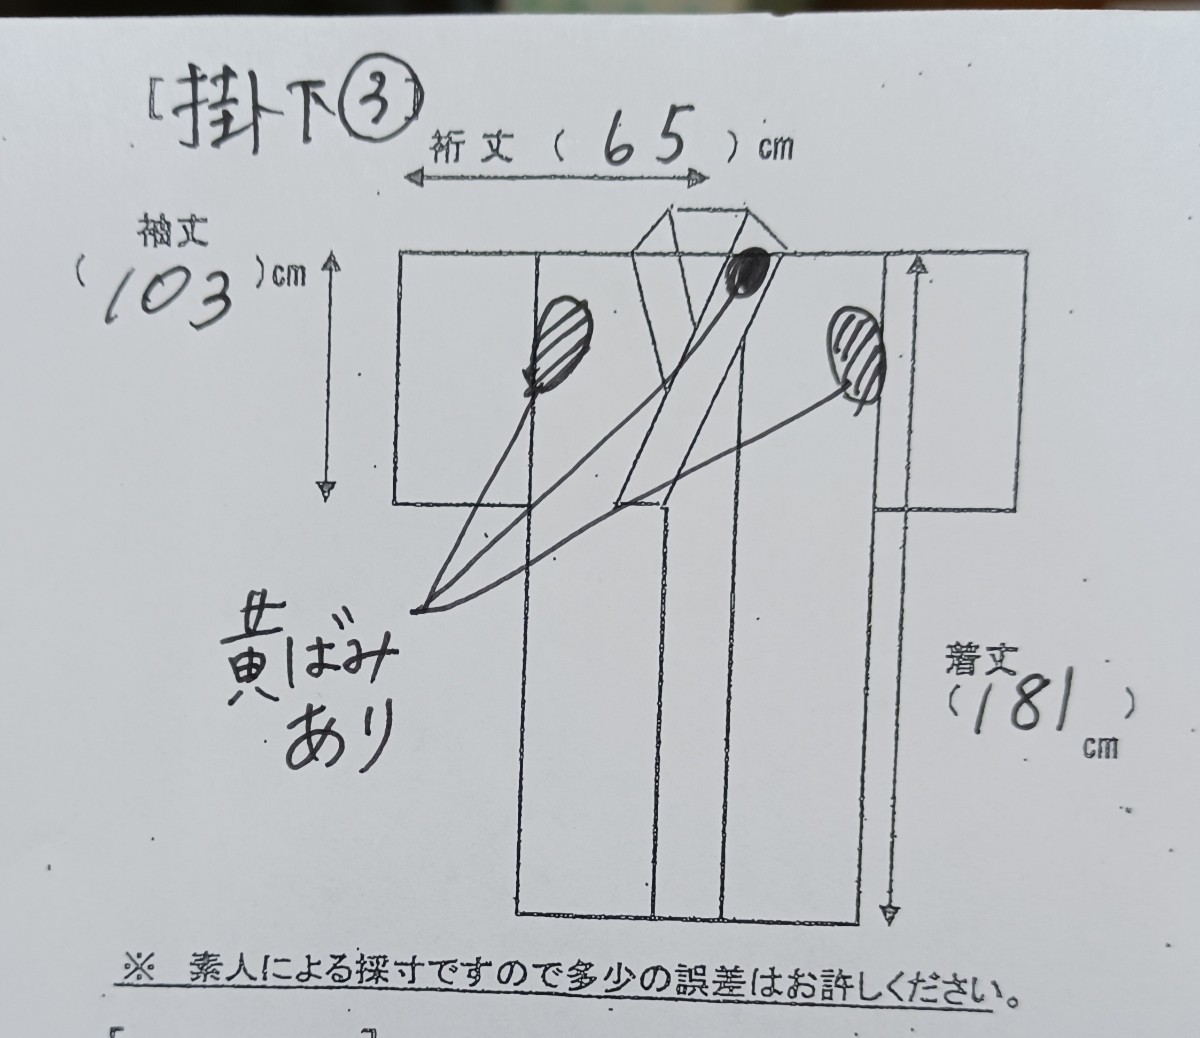 [掛下③]
裄丈（ 65 ）cm
袖丈
（103）cm
黄ばみ
あり
着丈
（181）
cm
※ 素人による採寸ですので多少の誤差はお許しください。
[ ]